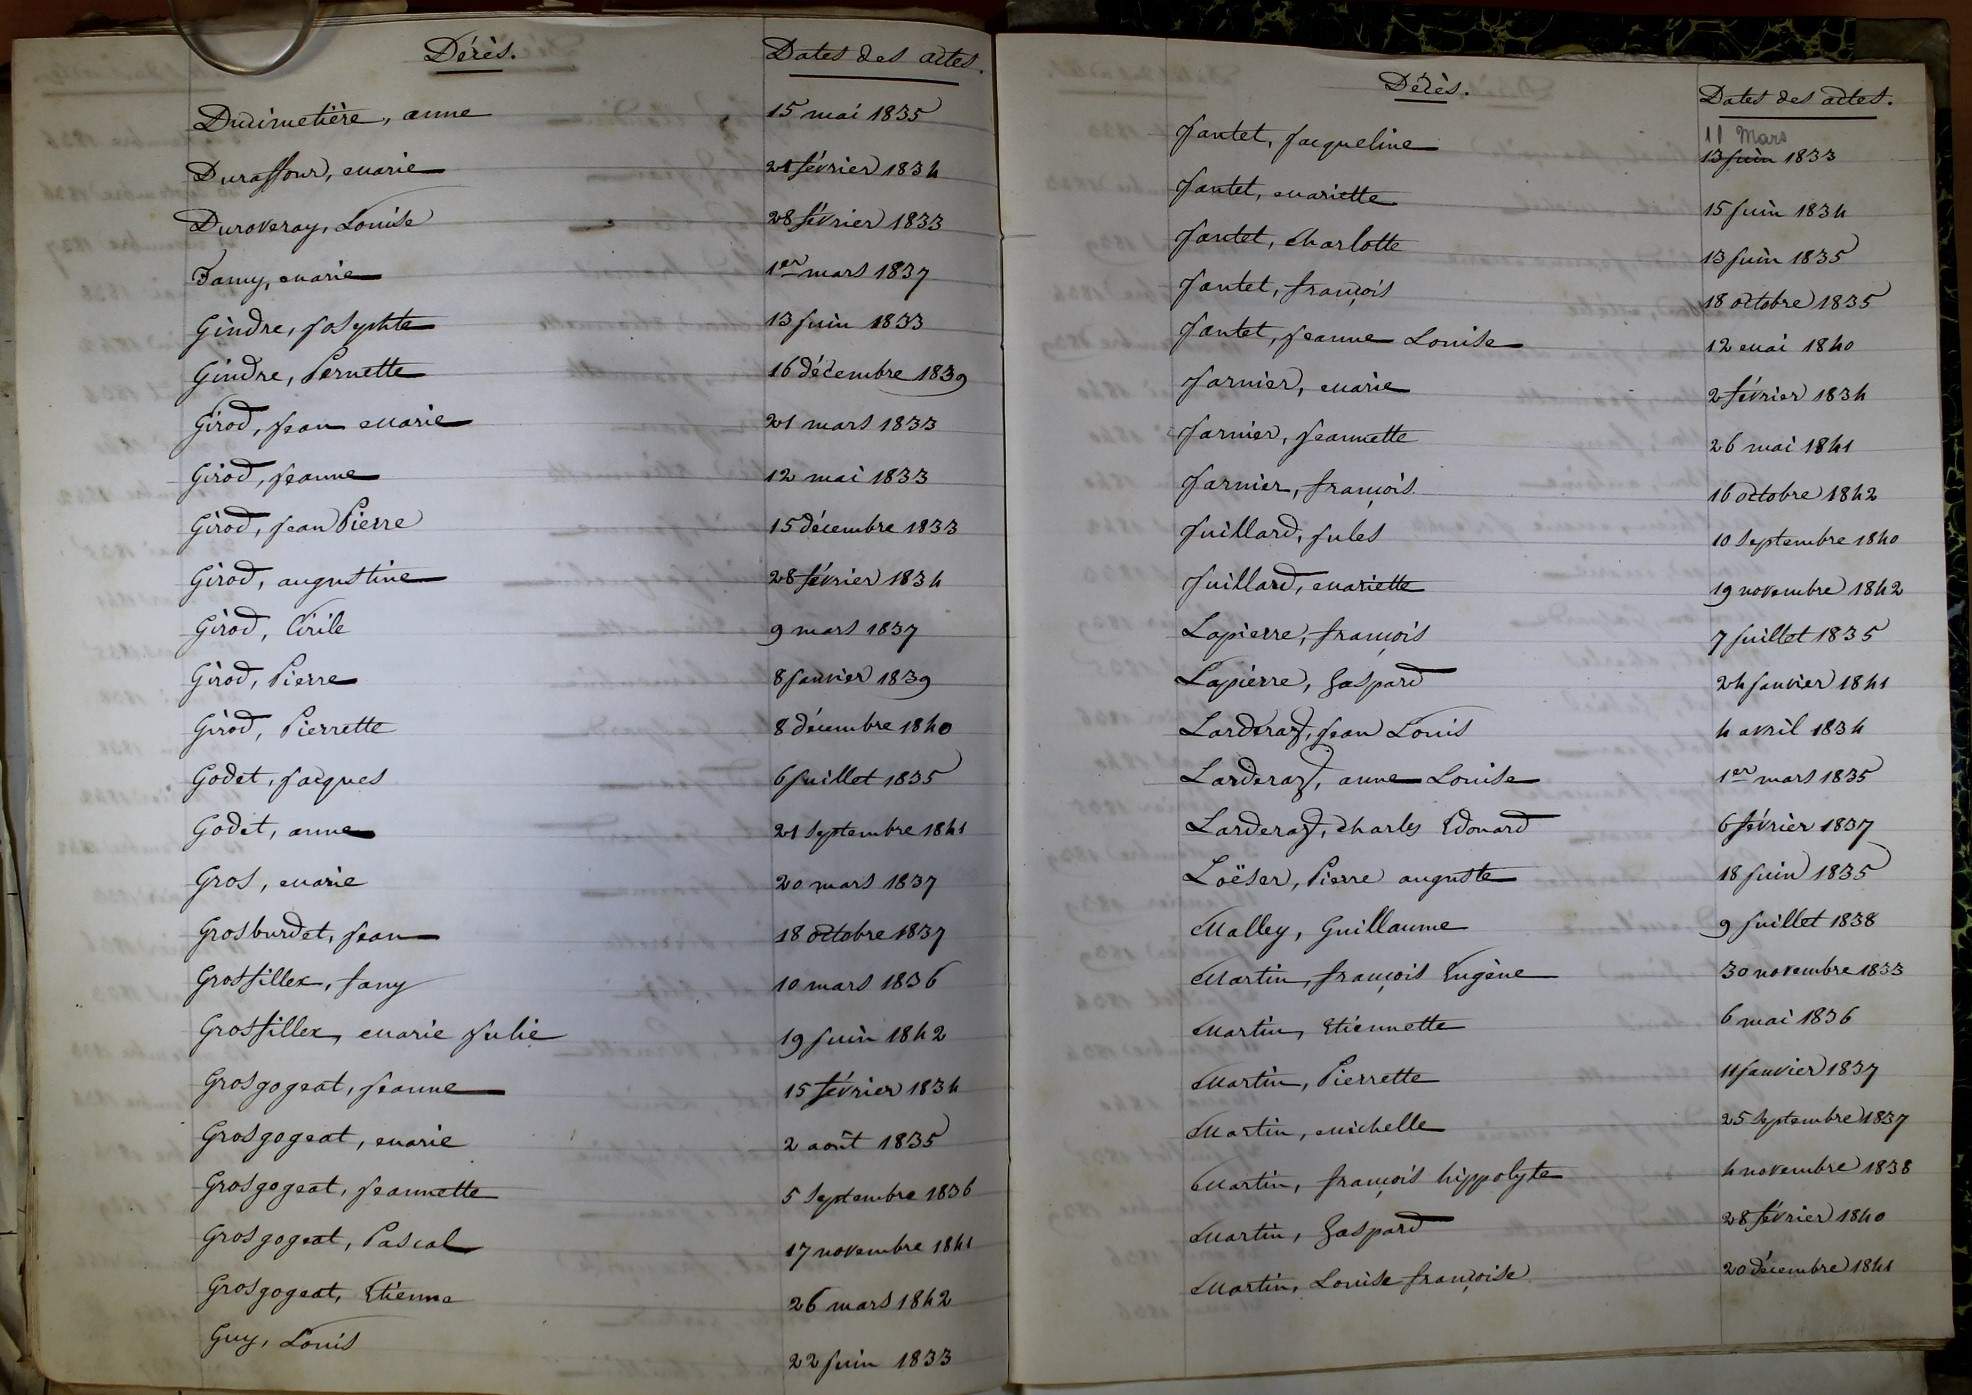 Décès. Dates des actes.
Ducimetière, anne 15 mai 1835
Duraffour, marie 21 février 1834
Duroveray, Louise 28 février 1833
Famy, marie 1er mars 1837
Gindre, Josephte 13 juin 1833
Gindre, Pernette 16 décembre 1839
Girod, jean marie 21 mars 1833
Girod, jeanne 12 mai 1833
Girod, jean Pierre 15 décembre 1833
Girod, augustine 28 février 1834
Girod, Cirile 9 mars 1837
Girod, Pierre 8 janvier 1839
Girod, Pierrette 8 décembre 1840
Godet, jacques 6 juillet 1835
Godet, anne 21 septembre 1841
Gros, marie 20 mars 1837
Grosburdet, jean 18 octobre 1837
Grosfillex, fany 10 mars 1836
Grosfillex, marie julie 19 juin 1842
Grosgogeat, jeanne 15 février 1834
Grosgogeat, marie 2 août 1835
Grosgogeat, jeannette 5 septembre 1836
Grosgogeat, Pascal 17 novembre 1841
Grosgogeat, Etienne 26 mars 1842
Guy, Louis 22 juin 1833
Décès. Dates des actes.
11 Mars
Jantet, jacqueline 13 juin 1833
Jantet, mariette 15 juin 1834
Jantet, charlotte 13 juin 1835
Jantet, françois 18 octobre 1835
Jantet, jeanne Louise 12 mai 1840
Jarnier, marie 2 février 1834
Jarnier, jeannette 26 mai 1841
Jarnier, françois 16 octobre 1842
Juillard, jules 10 septembre 1840
Juillard, mariette 19 novembre 1842
Lapierre, françois 7 juillet 1835
Lapierre, Gaspard 24 janvier 1841
Larderaz, jean Louis 4 avril 1834
Larderaz, anne Louise 1er mars 1835
Larderaz, charles Edouard 6 février 1837
Loëser, Pierre auguste 18 juin 1835
Malley, Guillaume 9 juillet 1838
Martin, françois Eugène 30 novembre 1833
Martin, Etiennette 6 mai 1836
Martin, Pierrette 11 janvier 1837
Martin, michelle 25 septembre 1837
Martin, françois hippolyte 4 novembre 1838
Martin, Gaspard 28 février 1840
Martin, Louise françoise 20 décembre 1841